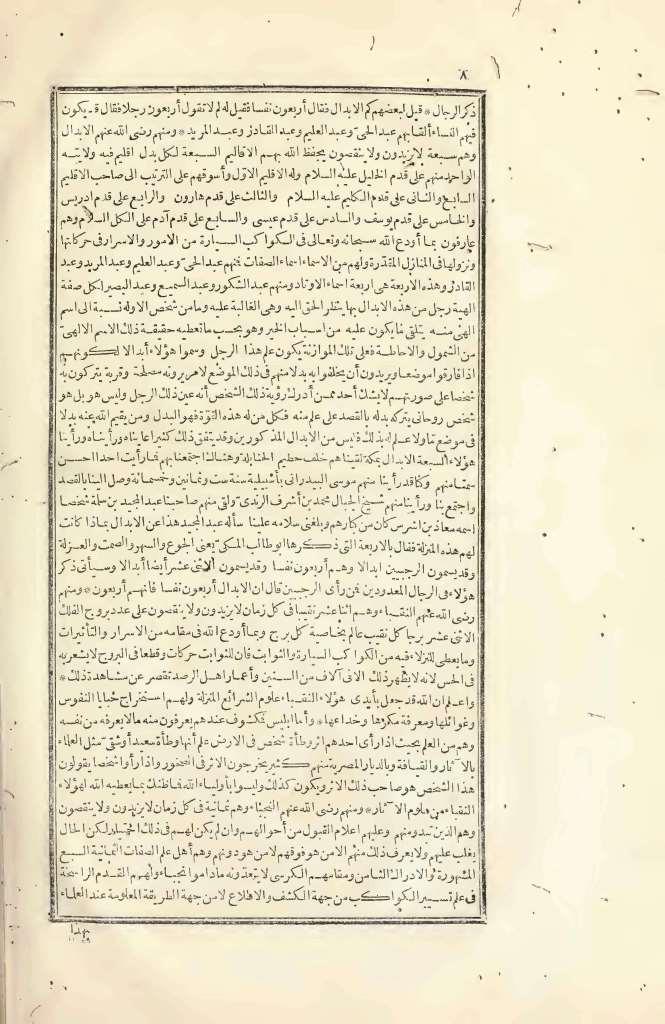 ٨
ذكر الرجال * قيل لبعضهم كم الابدال فقال أربعون نفسا فقيل له لم لا تقول أربعون رجلا فقال قد يكون
فيهم النساء ألقابهم عبد الحى وعبد العليم وعبد القادر وعبد المريد * ومنهم رضى الله عنهم الابدال
وهم سبعة لا يزيدون ولا ينقصون يحفظ الله بهم الاقاليم السبعة لكل بدل اقليم فيه ولايته
الواحد منهم على قدم الخليل عليه السلام وله الاقليم الاول وأسوقهم على الترتيب الى صاحب الاقليم
السابع والثانى على قدم الكليم عليه السلام والثالث على قدم هارون والرابع على قدم ادريس
والخامس على قدم يوسف والسادس على قدم عيسى والسابع على قدم آدم على الكل السلام وهم
عارفون بما أودع الله سبحانه وتعالى فى الكواكب السيارة من الامور والاسرار فى حركاتها
ونزولها فى المنازل المقدرة ولهم من الاسماء اسماء الصفات فمنهم عبد الحى وعبد العليم وعبد المريد وعبد
القادر وهذه الاربعة هى اربعة اسماء الاوتاد ومنهم عبد الشكور وعبد السميع وعبد البصير لكل صفة
الهية رجل من هذه الابدال بها ينظر الحق اليه وهى الغالبة عليه وما من شخص الا وله نسبة الى اسم
الهىّ منه يتلقى ما يكون عليه من اسباب الخير وهو بحسب ما تعطيه حقيقة ذلك الاسم الالهى
من الشمول والاحاطة فعلى تلك الموازنة يكون علم هذا الرجل وسموا هؤلاء أبدالا لكونهم
اذا فارقوا موضعا ويريدون أن يخلفوا به بدلا منهم فى ذلك الموضع لامر يرونه مصلحة وقربة يتركون به
شخصا على صورتهم لا يشك أحد ممن أدرك رؤية ذلك الشخص أنه عين ذلك الرجل وليس هو بل هو
شخص روحانى يتركه بدله بالقصد على علم منه فكل من له هذه القوة فهو البدل ومن يقيم الله عنه بدلا
فى موضع ما ولا علم له بذلك فليس من الابدال المذكورين وقد يتفق ذلك كثيرا عايناه ورأيناه ورأينا
هؤلاء السبعة الابدال بمكة لقيناهم خلف حطيم الحنابلة وهنالك اجتمعنا بهم فما رأيت احدا احسن
سمتا منهم وكنا قد رأينا منهم موسى البيدرانى بأشبيلية سنة ست وثمانين وخمسمائة وصل الينا بالقصد
واجتمع بنا ورأينا منهم شيخ الجبال محمد بن أشرف الرندى ولقى منهم صاحبنا عبد المجيد بن سلمة شخصا
اسمه معاذ بن اشرس كان من كبارهم وبلغنى سلامه علينا سأله عبد المجيد هذا عن الابدال بماذا كانت
لهم هذه المنزلة فقال بالاربعة التى ذكرها ابو طالب المكى يعنى الجوع والسهر والصمت والعزلة
وقد يسمون الرجبيين ابدالا وهم أربعون نفسا وقد يسمون الاثنى عشر أيضا أبدالا وسيأتى ذكر
هؤلاء فى الرجال المعدودين فمن رأى الرجبيين قال ان الابدال أربعون نفسا فانهم أربعون * ومنهم
رضى الله عنهم النقباء وهم اثنا عشر نقيبا فى كل زمان لا يزيدون ولا ينقصون على عدد بروج الفلك
الاثنى عشر برجا كل نقيب عالم بخاصية كل برج وبما أودع الله فى مقامه من الاسرار والتأثيرات
وما يعطى للنزلاء فيه من الكواكب السيارة والثوابت فان للثوابت حركات وقطعا فى البروج لا يشعر به
فى الحس لانه لا يظهر ذلك الا فى آلاف من السنين وأعمار اهل الرصد تقصر عن مشاهدة ذلك *
واعلم ان الله قد جعل بأيدى هؤلاء النقباء علوم الشرائع المنزلة ولهم استخراج خبايا النفوس
وغوائلها ومعرفة مكرها وخداعها * وأما ابليس فمكشوف عندهم يعرفون منه ما لا يعرفه من نفسه
وهم من العلم بحيث اذا رأى احدهم اثر وطأة شخص فى الارض علم أنها وطأة سعيد أو شقى مثل العلماء
بالآثار والقيافة وبالديار المصرية منهم كثير يخرجون الاثر فى الصخور واذا رأوا شخصا يقولون
هذا الشخص هو صاحب ذلك الاثر ويكون كذلك وليسوا بأولياء الله فما ظنك بما يعطيه الله لهؤلاء
النقباء من علوم الآثار * ومنهم رضى الله عنهم النجباء وهم ثمانية فى كل زمان لا يزيدون ولا ينقصون
وهم الذين تبدو منهم وعليهم اعلام القبول من أحوالهم وان لم يكن لهم فى ذلك اختيار لكن الحال
يغلب عليهم ولا يعرف ذلك منهم الا من هو فوقهم لا من هو دونهم وهم أهل علم الصفات الثمانية السبع
المشهورة والادراك الثامن ومقامهم الكرسى لا يتعدونه ما داموا نجباء ولهم القدم الراسخة
فى علم تسيير الكواكب من جهة الكشف والاطلاع لا من جهة الطريقة المعلومة عند العلماء
بهذا